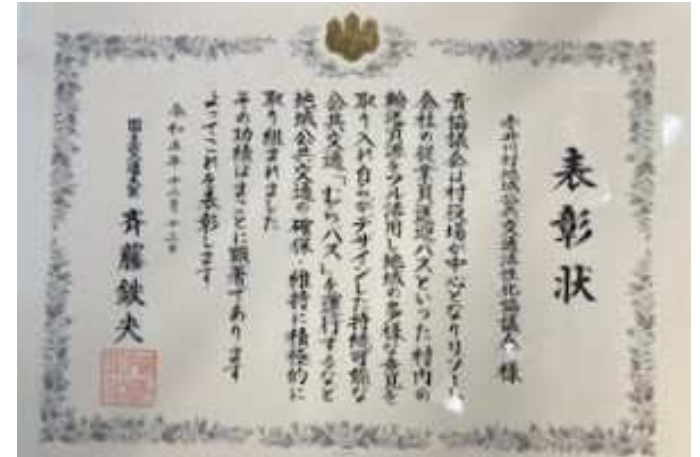 表彰状
赤井川村地域公共交通活性化協議会 様
貴協議会は村役場が中心となりリゾート
会社の従業員送迎バスといった村内の
輸送資源をフル活用し地域の多様な意見を
取り入れ自らデザインした持続可能な
公共交通「むらバス」を運行するなど
地域公共交通の確保・維持に積極的に
取り組まれました
その功績はまことに顕著であります
よってこれを表彰します
令和五年十二月十二日
国土交通大臣 斉藤鉄夫